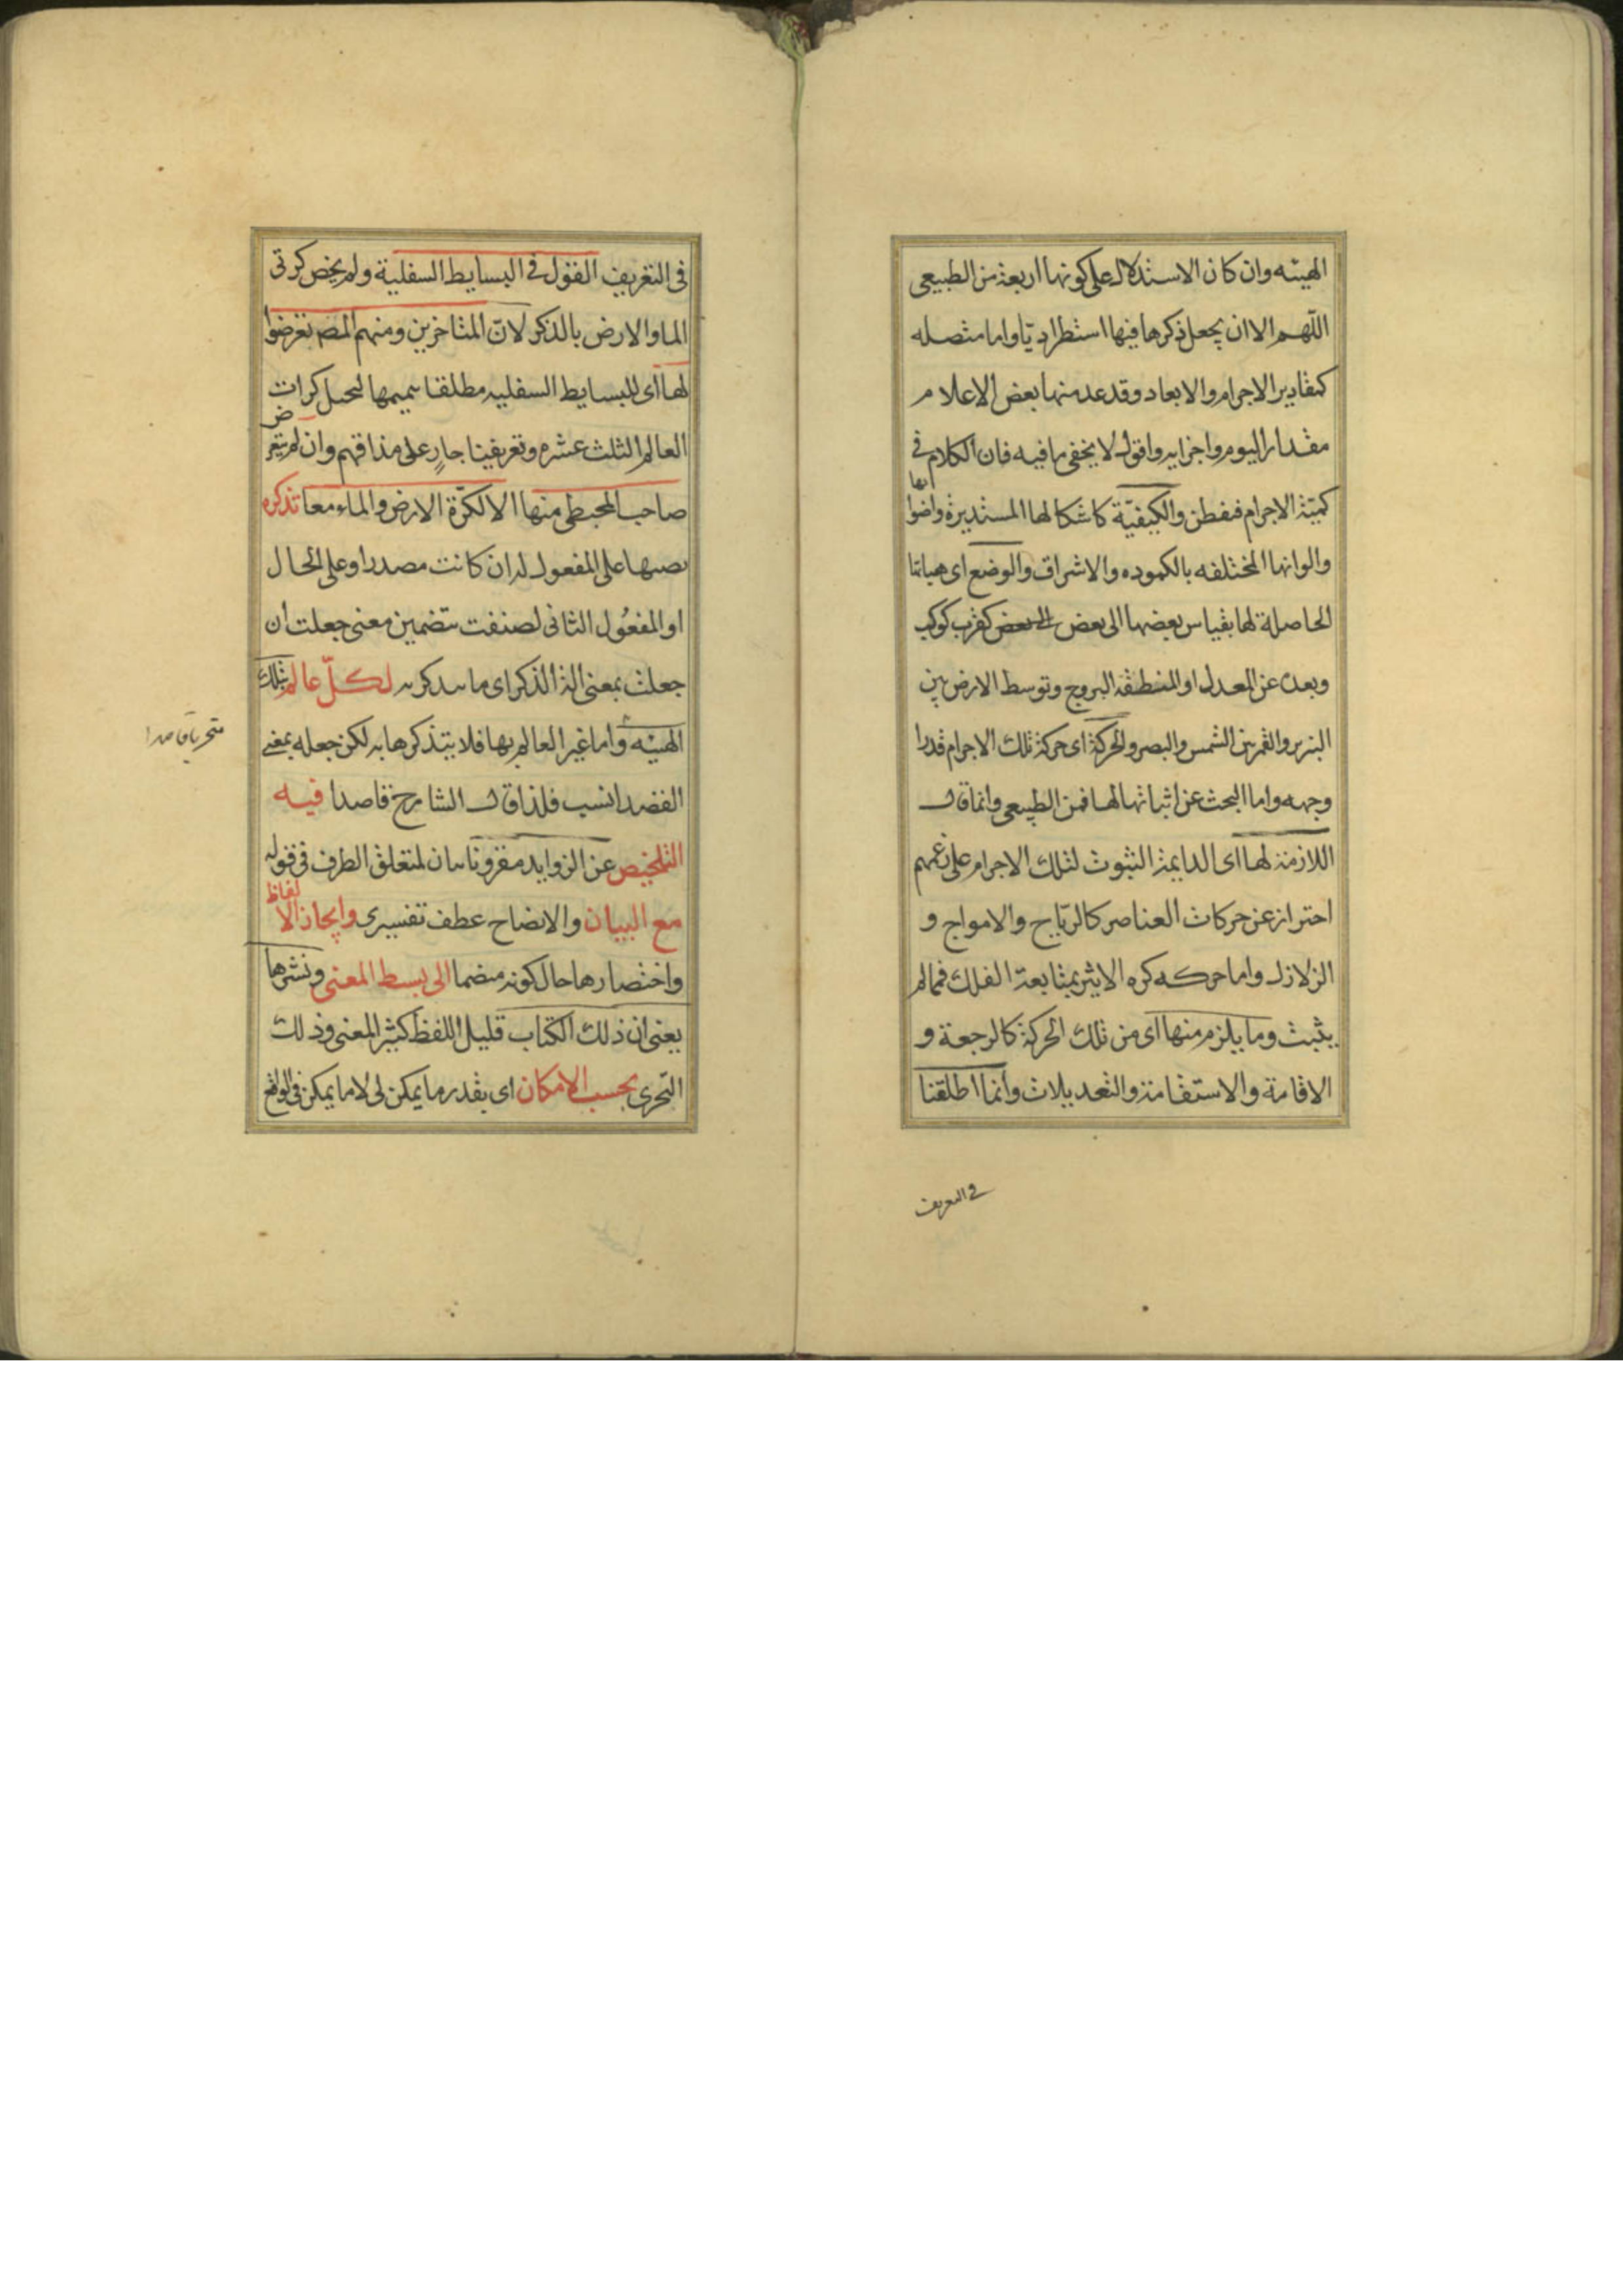 الهيئه وان كان الاستدلال على كونها اربعة من الطبيعى
اللهم الا ان يجعل ذكرها فيها استطراديا واما متصله
كمقادير الاجرام والابعاد وقد عد منها بعض الاعلام
مقدار اليوم واجزايه واقول لا يخفى ما فيه فان الكلام فى
كميّة الاجرام فتفطن والكيفيّة كاشكالها المستديرة واضوائها
والوانها المختلفه بالكموده والاشراق والوضع اى هياتها
الحاصلة لها بقياس بعضها الى بعض كقرب كوكب
وبعده عن المعدل او المنطقة البروج وتوسط الارض بين
النيرين والقمر بين الشمس والبصر والحركة اى حركة تلك الاجرام قدرا
وجهه واما البحث عن اثباتها لها فمن الطبيعى وانما قال
اللازمة لها اى الدايمة الثبوت لتلك الاجرام على زعمهم
احتراز عن حركات العناصر كالريّاح والامواج و
الزلازل واما حركه كره الاثير بمتابعة الفلك فمما لم
يثبت وما يلزم منها اى من تلك الحركة كالرجعة و
الاقامة والاستقامة والتعديلات وانما اطلقنا
فى التعريف
فى التعريف القول فى البسايط السفلية ولم يخص كرتى
الما والارض بالذكر لانّ المتاخرين ومنهم المصـ تعرضوا
لها اى للبسايط السفليه مطلقا تتميمها لتحصل كرات
العالم الثلث عشره وتعريفينا جارٍ على مذاقهم وان لم يتعرض
صاحب المجسطى منها الا لكرّة الارض والماء معا تذكره
نصبها على المفعول له ان كانت مصدرا وعلى الحال
او المفعُول الثانى لصنفت بتضمين معنى جعلت ان
جعلت بمعنى الة الذكر اى ما يتذكر به لكلّ عالم بتلك
الهيئه واما غير العالم بها فلا يتذكرها به لكن جعله بمعنى
القصد انسب فلذا قال الشارح قاصدا فيه
متحريا قاصدا
التلخيص عن الزوايد مقرونا بيان لمتعلق الظرف فى قوله
مع البيان والايضاح عطف تفسيرى وايجاز الالفاظ
واختصارها حال كونه منضما الى بسط المعنى ونشرها
يعنى ان ذلك الكتاب قليل اللفظ كثير المعنى وذلك
التحرى بحسب الامكان اى بقدر ما يمكن لى لا ما يمكن فى الواقع